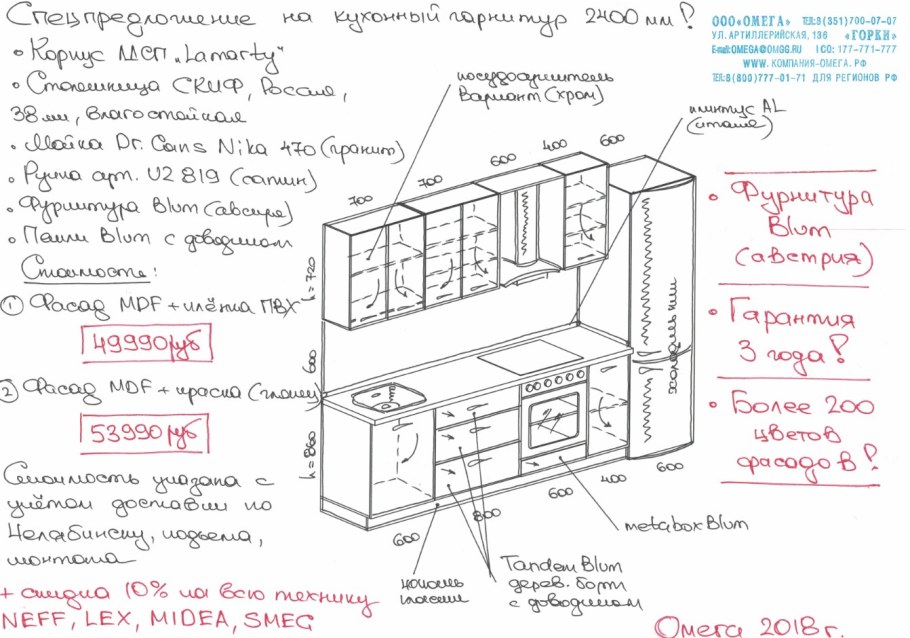 Спецпредложение на кухонный гарнитур 2400 мм!
ООО«ОМЕГА» ТЕЛ:8(351)700-07-07
УЛ. АРТИЛЛЕРИЙСКАЯ, 136 «ГОРКИ»
E-mail:OMEGA@OMGG.RU ICQ: 177-771-777
WWW. КОМПАНИЯ-ОМЕГА. РФ
ТЕЛ:8(800)777-01-71 ДЛЯ РЕГИОНОВ РФ
• Корпус ДСП „Lamarty"
• Столешница СКИФ, Россия,
38 мм, влагостойкая
• Мойка Dr. Gans Nika 470 (гранит)
• Ручка арт. U2 819 (сатин)
• Фурнитура Blum (австрия)
• Петли Blum с доводчиком
Стоимость:
① Фасад MDF + плёнка ПВХ
49990 руб
② Фасад MDF + краска (глянец)
53990 руб
Стоимость указана с
учётом доставки по
Челябинску, подъема,
монтажа
+ скидка 10% на всю технику
NEFF, LEX, MIDEA, SMEG
посудосушитель
Вариант (хром)
плинтус AL
(италия)
700
700
600
400
600
h=720
600
h=860
холодильник
600
800
600
400
600
metabox Blum
Tandem Blum
дерев. борти
с доводчиком
цоколь
пластик
• Фурнитура
Blum
(австрия)
• Гарантия
3 года!
• Более 200
цветов
фасадов!
Омега 2018 г.